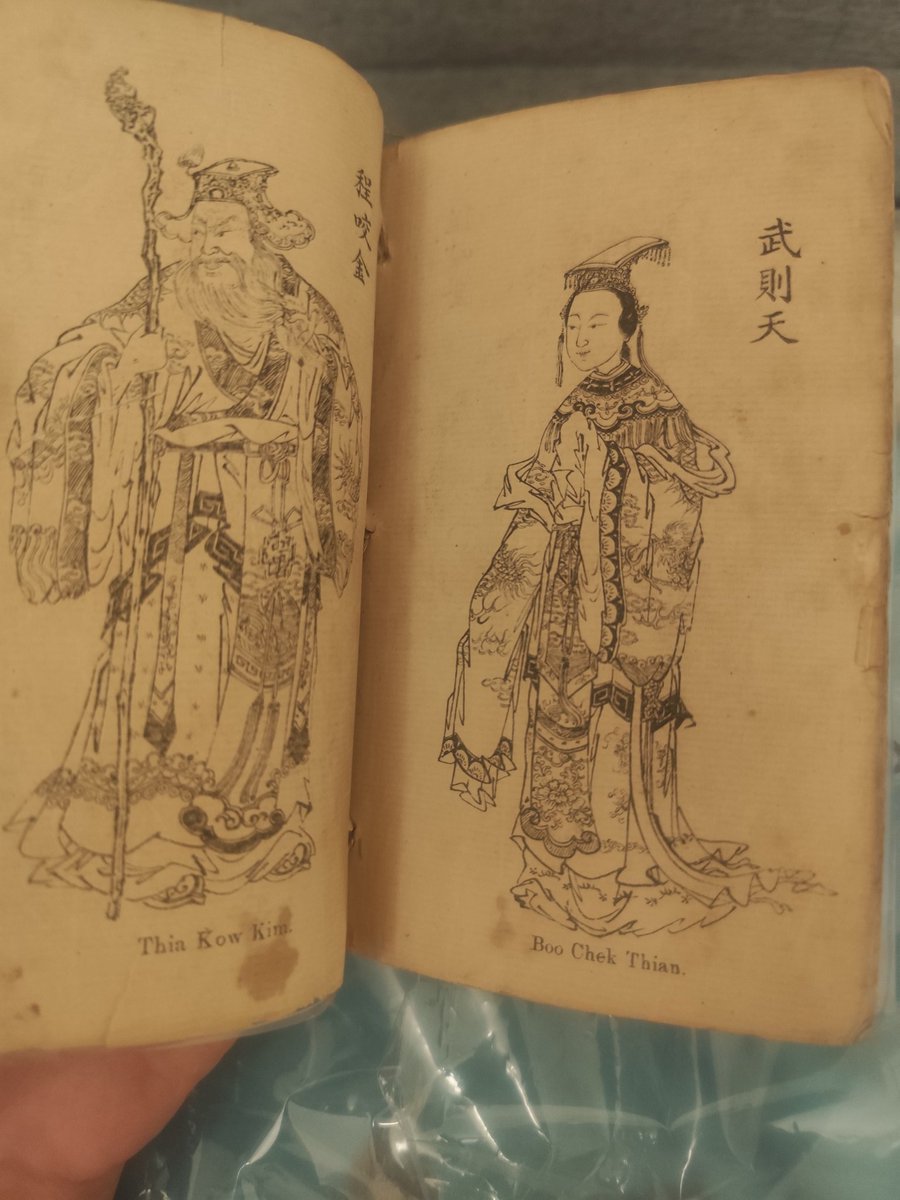 程咬金
Thia Kow Kim.
武則天
Boo Chek Thian.